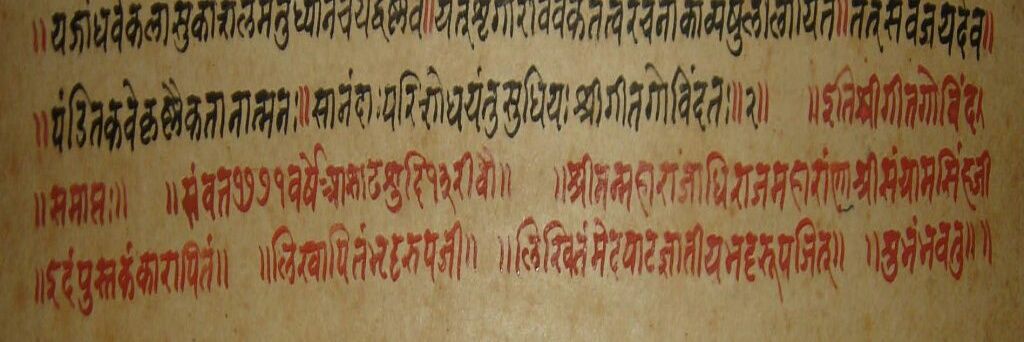 ॥यज्ञांधर्वकलासुकौशलमनुध्यानंचयद्वैष्णवं॥यत्शृंगारविवेकतत्वरचनाकाव्येषुलीलायितं॥तत्सर्वंजयदेव॥
॥पंडितकवेःकृष्णैकतानात्मनः॥सानंदाःपरिशोधयंतुसुधियःश्रीगीतगोविंदतः॥२॥ ॥इतिश्रीगीतगोविंद।
॥समाप्तः॥ ॥संवत१७७१वर्षेआषाढशुदि१३रवौ॥ ॥श्रीमन्महाराजाधिराजमहाराणाश्रीसंग्रामसिंहजी
॥इदंपुस्तकंकारापितं॥ ॥लिखापितंभटरूपजी॥ ॥लिखितंमेदपाटज्ञातीयभटरूपजित्॥ ॥शुभंभवतु॥॥